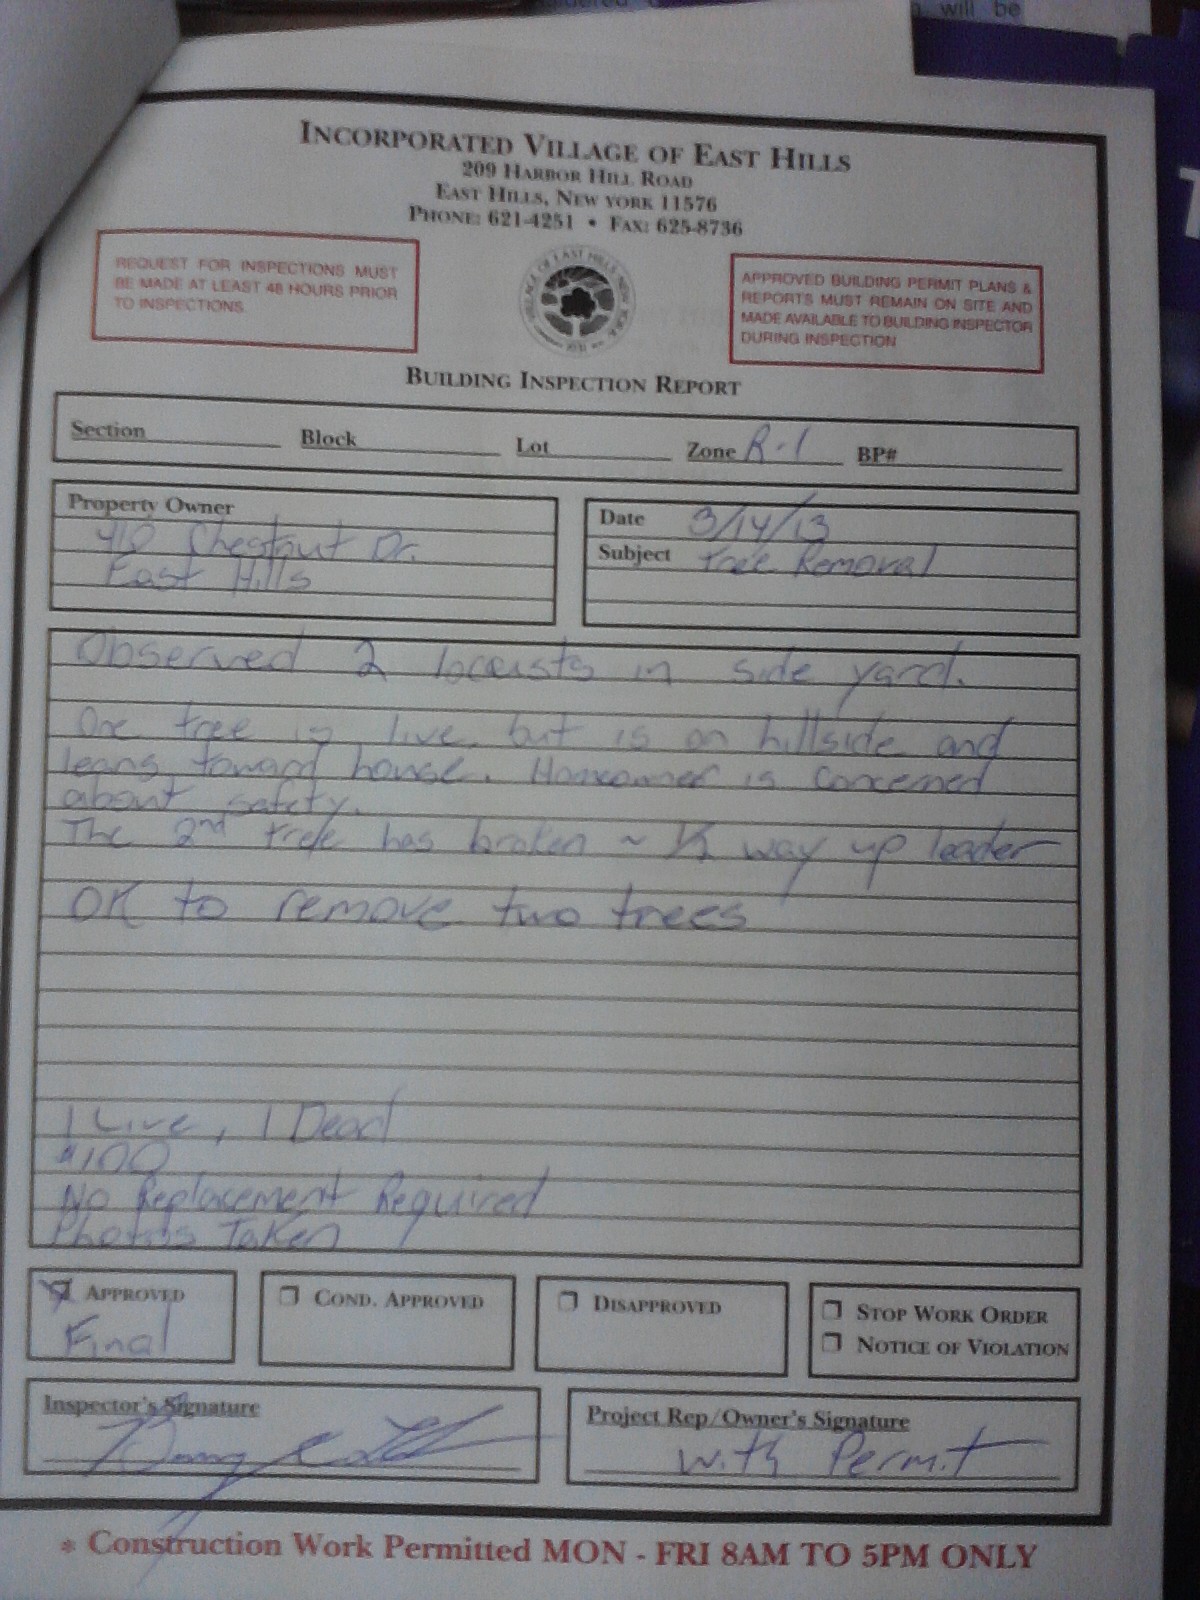 will be
INCORPORATED VILLAGE OF EAST HILLS
209 HARBOR HILL ROAD
EAST HILLS, NEW YORK 11576
PHONE: 621-4251 • FAX: 625-8736
REQUEST FOR INSPECTIONS MUST
BE MADE AT LEAST 48 HOURS PRIOR
TO INSPECTIONS.
VILLAGE OF EAST HILLS NEW YORK
APPROVED BUILDING PERMIT PLANS &
REPORTS MUST REMAIN ON SITE AND
MADE AVAILABLE TO BUILDING INSPECTOR
DURING INSPECTION
BUILDING INSPECTION REPORT
Section Block Lot Zone R-1 BP#
Property Owner
410 Chestnut Dr.
East Hills
Date 3/14/13
Subject Tree Removal
Observed 2 locusts in side yard.
One tree is live, but is on hillside and
leans toward house. Homeowner is concerned
about safety.
The 2nd tree has broken ~ 1/2 way up leader
OK to remove two trees
1 Live, 1 Dead
$100
No Replacement Required
Photos Taken
APPROVED
Final
COND. APPROVED
DISAPPROVED
STOP WORK ORDER
NOTICE OF VIOLATION
Inspector's Signature
Project Rep/Owner's Signature
with Permit
* Construction Work Permitted MON - FRI 8AM TO 5PM ONLY